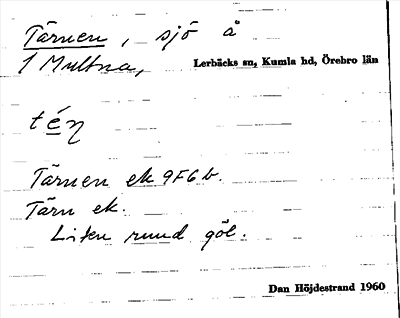 Tärnen, sjö å
1 Multna,
Lerbäcks sn, Kumla hd, Örebro län
tén
Tärnen ek 9F6b.
Tärn ek.
Liten rund göl.
Dan Höjdestrand 1960